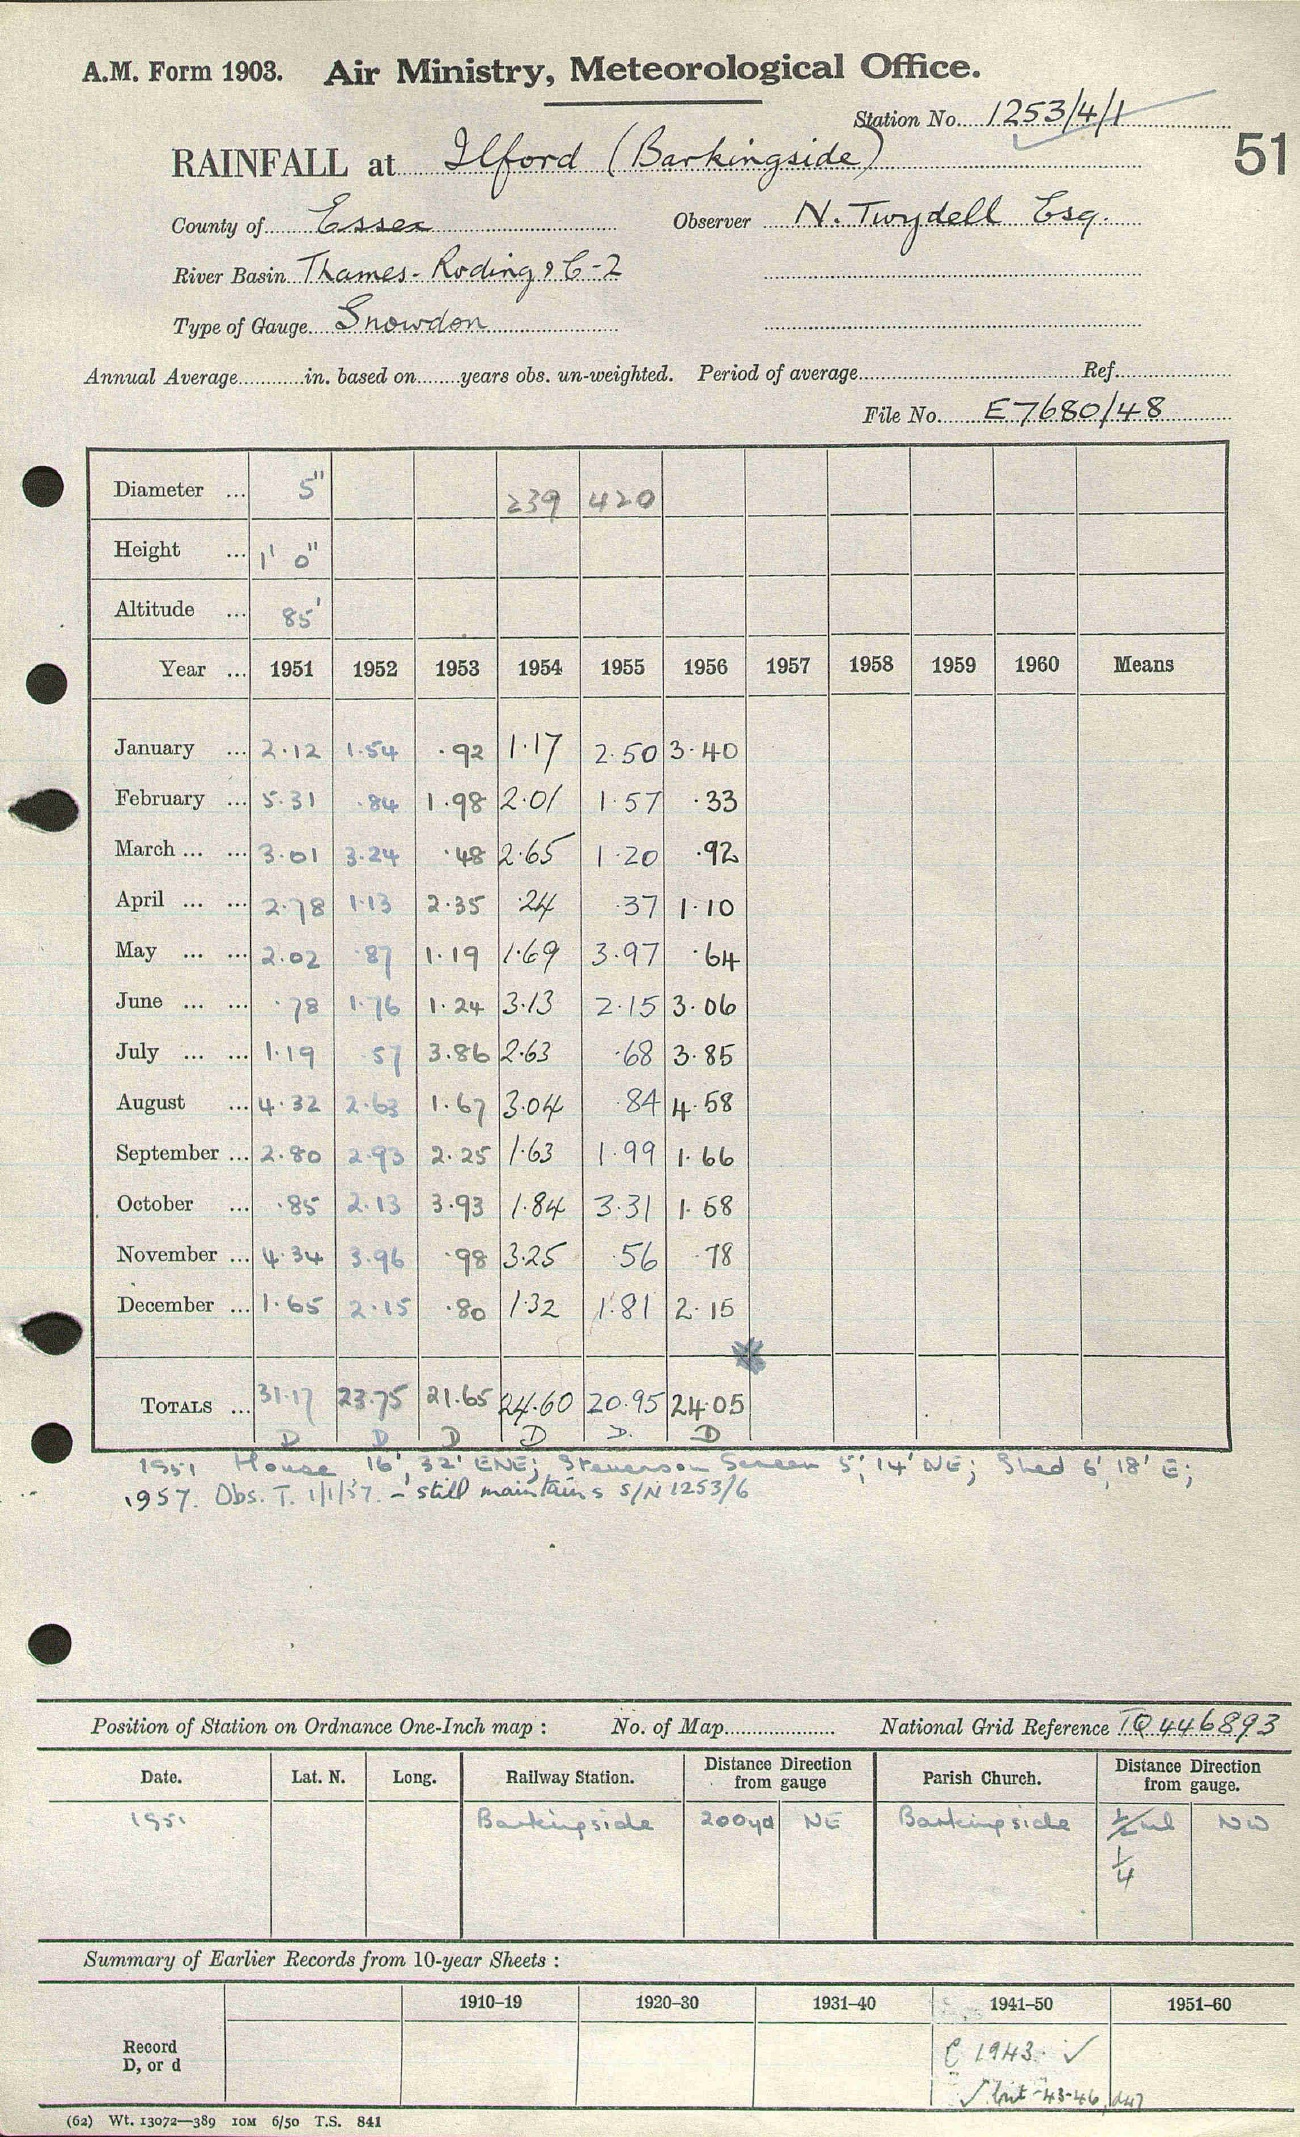 A.M. Form 1903. Air Ministry, Meteorological Office.
Station No. 1253/4/1
51
RAINFALL at Ilford (Barkingside)
County of Essex Observer N. Twydell Esq.
River Basin Thames - Roding & C-2
Type of Gauge Snowdon
Annual Average in. based on years obs. un-weighted. Period of average Ref.
File No. E7680/48
Diameter ... 5" 239 420
Height ... 1' 0"
Altitude ... 85'
Year ... 1951 1952 1953 1954 1955 1956 1957 1958 1959 1960 Means
January ... 2.12 1.54 .92 1.17 2.50 3.40
February ... 5.31 .84 1.98 2.01 1.57 .33
March ... ... 3.01 3.24 .48 2.65 1.20 .92
April ... ... 2.78 1.13 2.35 .24 .37 1.10
May ... ... 2.02 .87 1.19 1.69 3.97 .64
June ... ... .78 1.76 1.24 3.13 2.15 3.06
July ... ... 1.19 .57 3.86 2.63 .68 3.85
August ... 4.32 2.63 1.67 3.04 .84 4.58
September ... 2.80 2.93 2.25 1.63 1.99 1.66
October ... .85 2.13 3.93 1.84 3.31 1.58
November ... 4.34 3.96 .98 3.25 .56 .78
December ... 1.65 2.15 .80 1.32 1.81 2.15
TOTALS ... 31.17 23.75 21.65 24.60 20.95 24.05
D D D D D. D
1951 House 16', 32' ENE; Stevenson Screen 5', 14' NE; Shed 6', 18' E;
1957. Obs. T. 1/1/57. - still maintains S/N 1253/6
Position of Station on Ordnance One-Inch map : No. of Map National Grid Reference TQ446893
Date. Lat. N. Long. Railway Station. Distance Direction from gauge Parish Church. Distance Direction from gauge.
1951 Barkingside 200yd NE Barkingside 1/2 ml NW
1/4
Summary of Earlier Records from 10-year Sheets :
1910–19 1920–30 1931–40 1941–50 1951–60
Record
D, or d
C 1943 ✓
✓ but -43-46,
(62) Wt. 13072—389 10M 6/50 T.S. 841